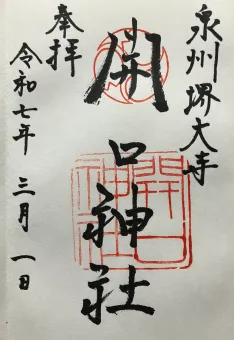 泉州堺大寺
開口神社
奉拝
令和七年 三月 一日
開口
神社